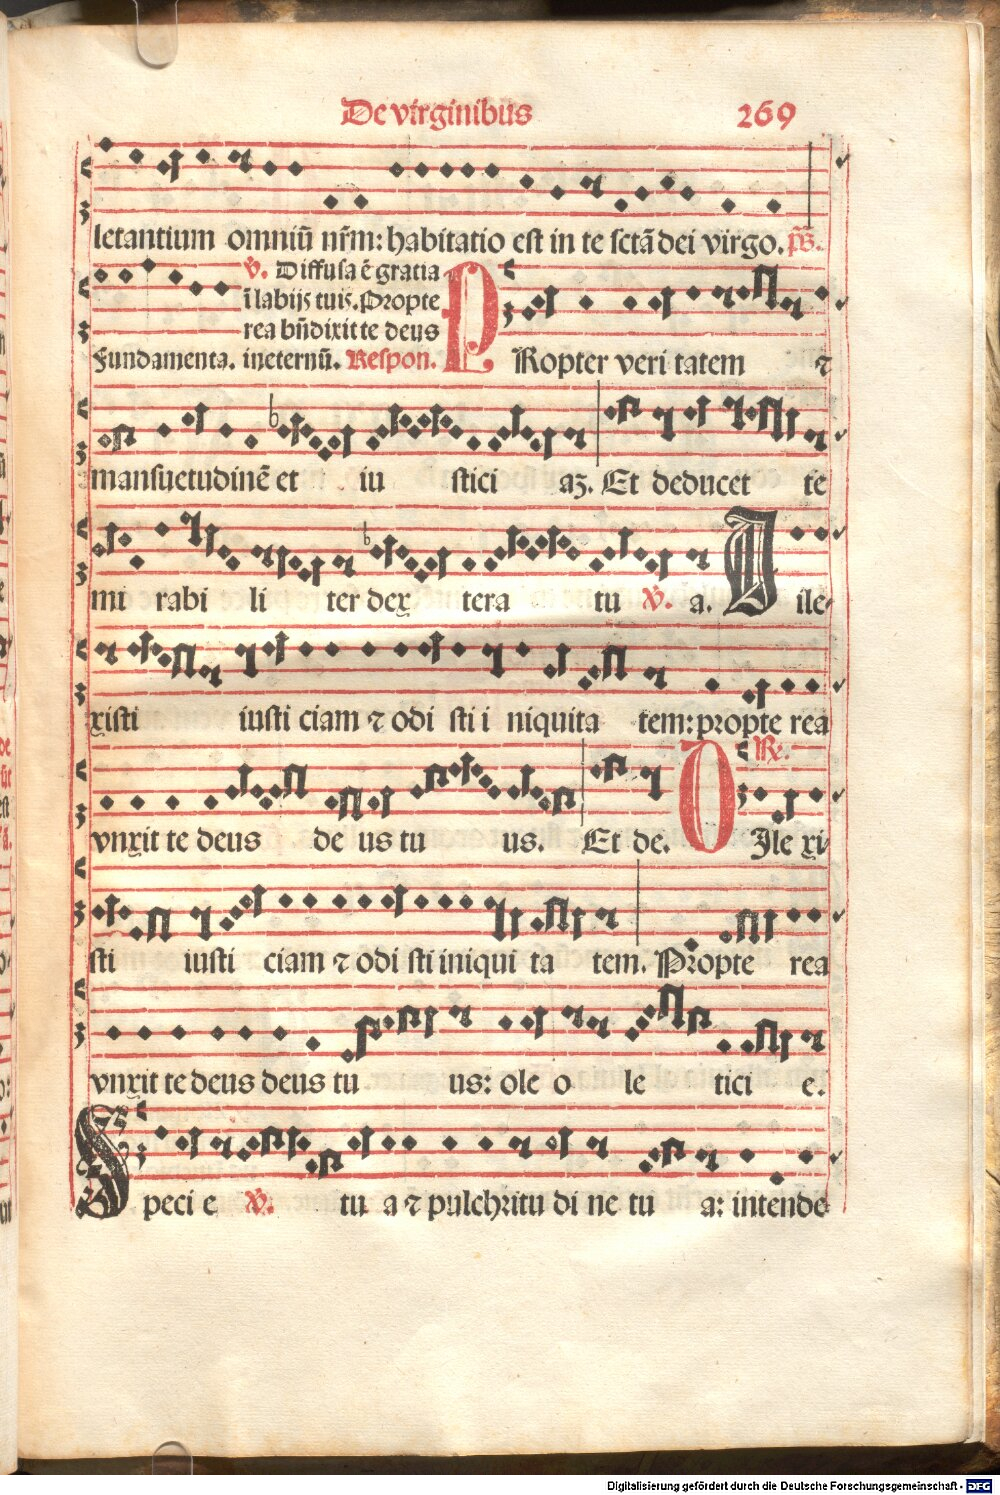 De virginibus 269
letantium omniū nr̄m: habitatio est in te sctā dei virgo. p̄s.
v̄. Diffusa ē gratia
ī labijs tuis. Propte
rea bn̄dixit te deus
Fundamenta. ineternū. Respon. PRopter veri tatem ⁊
mansuetudinē et iu stici aꝫ. Et deducet te
mi rabi li ter dex tera tu v̄. a. Dile-
xisti iusti ciam ⁊ odi sti i niquita tem: propte rea
vnxit te deus de us tu us. Et de. ℟. DIle xi-
sti iusti ciam ⁊ odi sti iniqui ta tem. Propte rea
vnxit te deus deus tu us: ole o le tici e.
Speci e v̄. tu a ⁊ pulchritu di ne tu a: intende
Digitalisierung gefördert durch die Deutsche Forschungsgemeinschaft - DFG